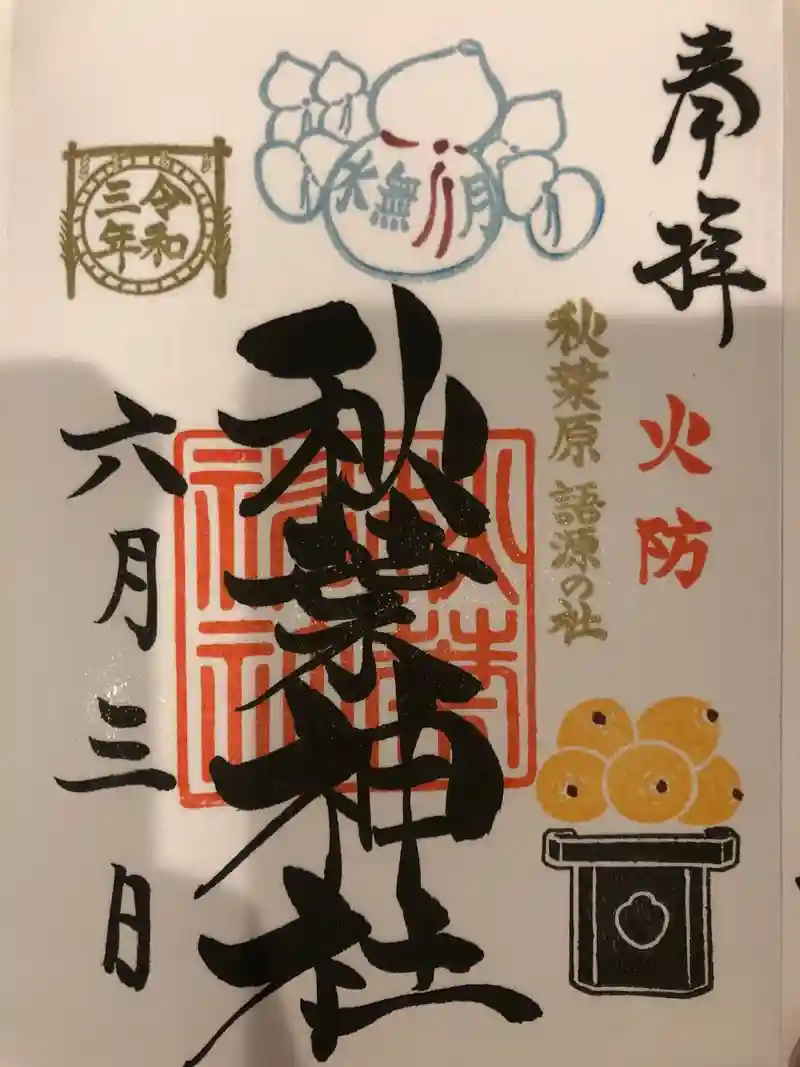 奉拝
火防
秋葉原 語源の社
水無月
秋葉神社
秋葉神社
令和
三年
六月三日